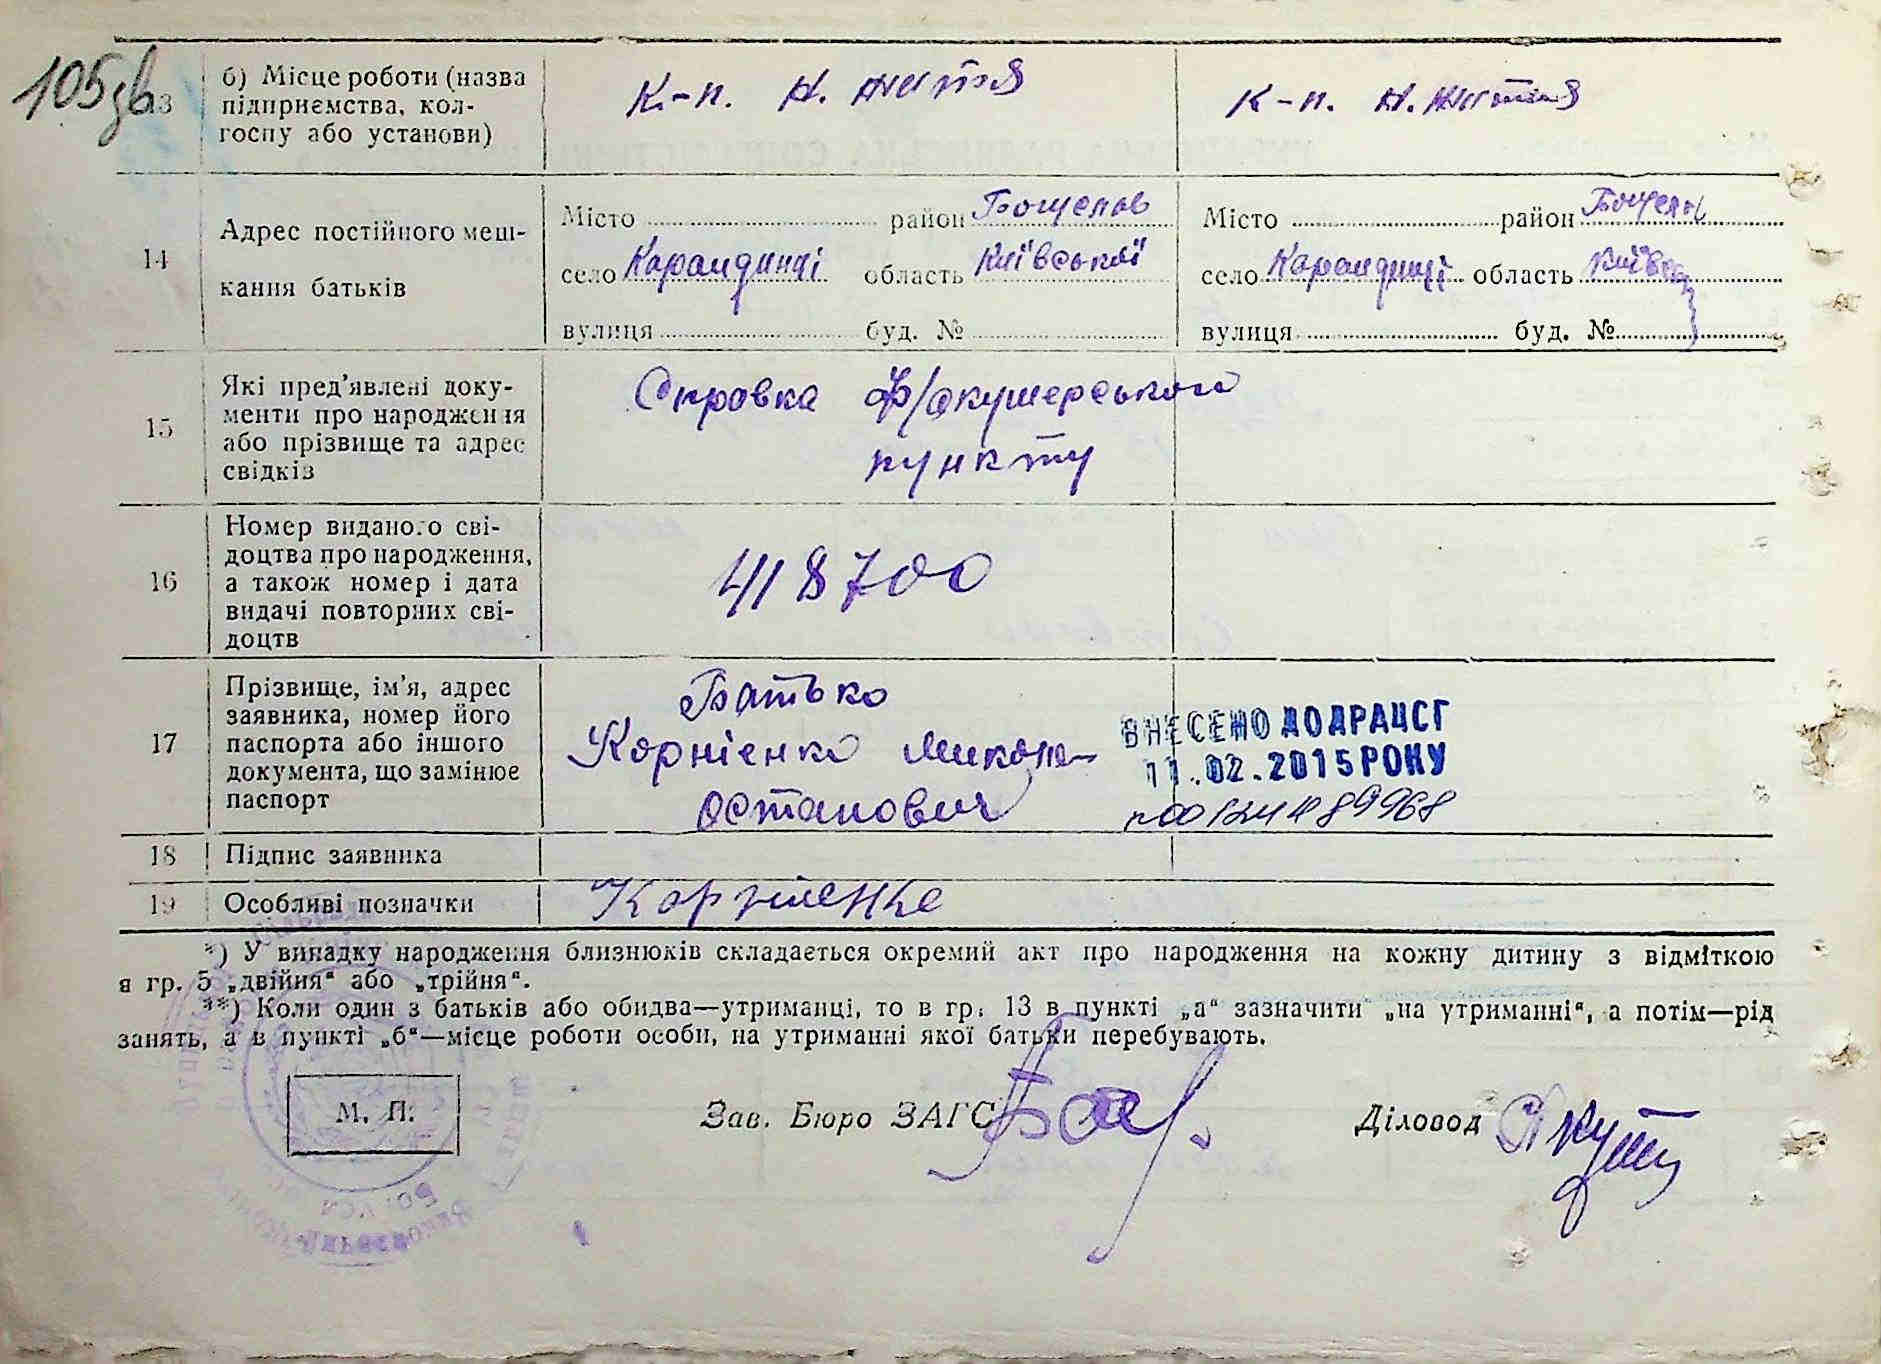 105 зв
13 б) Місце роботи (назва
підприємства, кол-
госпу або установи)
К-п. Н. життя
К-п. Н. життя
14 Адрес постійного меш-
кання батьків
Місто район Богуслав
село Карандинці область Київської
вулиця буд. №
Місто район Богусл
село Карандинці область Київс
вулиця буд. №
15 Які пред'явлені доку-
менти про народження
або прізвище та адрес
свідків
Справка Ф/акушерського
пункту
16 Номер виданого сві-
доцтва про народження,
а також номер і дата
видачі повторних сві-
доцтв
418700
17 Прізвище, ім'я, адрес
заявника, номер його
паспорта або іншого
документа, що замінює
паспорт
Батько
Корнієнко Микола
Остапович
ВНЕСЕНО ДО ДРАЦСГ
11.02.2015 РОКУ
18 Підпис заявника
19 Особливі позначки
Корнієнко
*) У випадку народження близнюків складається окремий акт про народження на кожну дитину з відміткою
в гр. 5 „двійня“ або „трійня“.
**) Коли один з батьків або обидва—утриманці, то в гр. 13 в пункті „а“ зазначити „на утриманні“, а потім—рід
занять, а в пункті „б“—місце роботи особи, на утриманні якої батьки перебувають.
М. П.
Зав. Бюро ЗАГС
Діловод